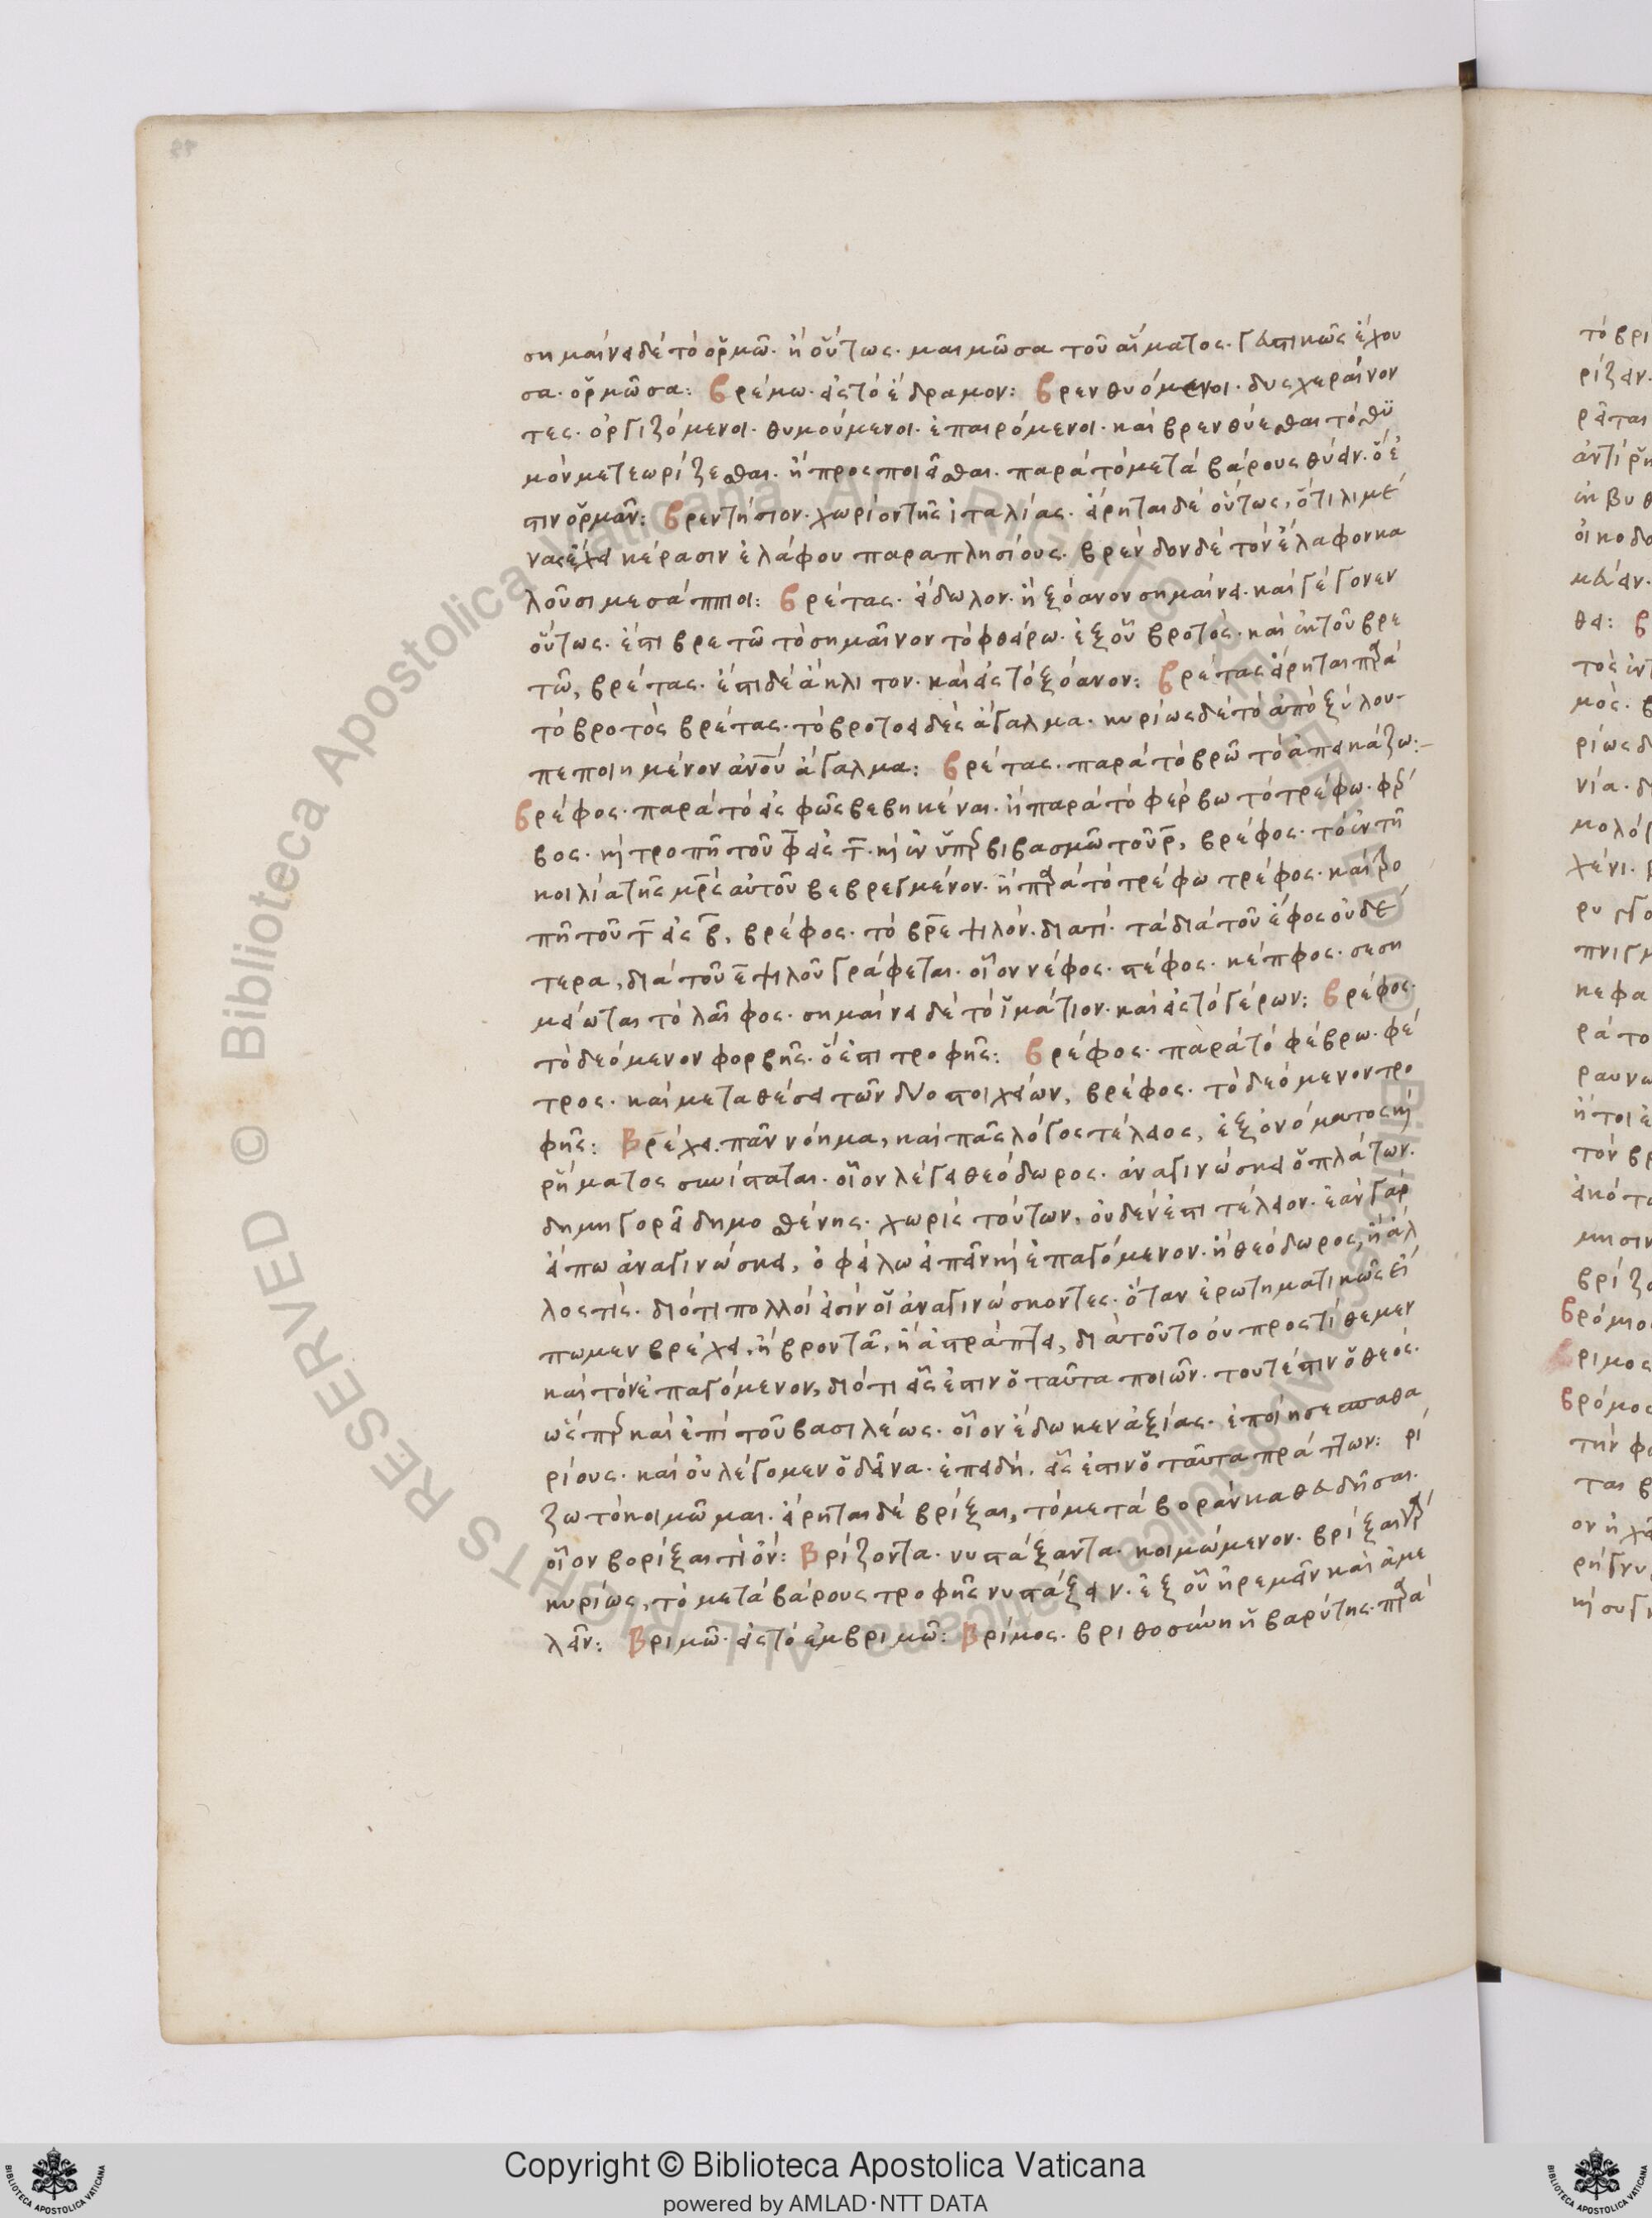 σημαίνει δὲ τὸ ὁρμῶ· ἢ οὕτως· μαιμῶσα τοῦ αἵματος· γευστικῶς ἔχου
σα· ὁρμῶσα: βρέμω· εἰς τὸ ἔδραμον: βρενθυόμενοι· δυσχεραίνον
τες· ὀργιζόμενοι· θυμούμενοι· ἐπαιρόμενοι· καὶ βρενθύεσθαι τὸ θυ
μὸν μετεωρίζεσθαι· ἢ προσποιεῖσθαι· παρὰ τὸ μετὰ βάρους θύειν· ὅ ἐ
στιν ὁρμᾶν: βρεντήσιον· χωρίον τῆς ἰταλίας· εἴρηται δὲ οὕτως, ὅτι λιμέ
νας ἔχει κέρασιν ἐλάφου παραπλησίους· βρένδον δὲ τὸν ἔλαφον κα
λοῦσι μεσάππιοι: βρέτας· εἴδωλον· ἢ ξόανον σημαίνει· καὶ γέγονεν
οὕτως· ἔστι βρετῶ τὸ σημαῖνον τὸ φθείρω· ἐξ οὗ βροτὸς· καὶ ἐκ τοῦ βρε
τῶ, βρέτας· ἔστι δὲ ἄκλιτον· καὶ εἰς τὸ ξόανον: βρέτας εἴρηται παρὰ
τὸ βροτὸς βρέτας· τὸ βροτοειδὲς ἄγαλμα· κυρίως δὲ τὸ ἀπὸ ξύλου
πεποιημένον ἀνου ἄγαλμα: βρέτας· παρὰ τὸ βρῶ τὸ ἀπεικάζω:
βρέφος· παρὰ τὸ εἰς φῶς βεβηκέναι· ἢ παρὰ τὸ φέρβω τὸ τρέφω· φέρ
βος· κὴ τροπῆ τοῦ φ εἰς τ· κὴ ἐν ὑπερβιβασμῶ τοῦ ρ, βρέφος· τὸ ἐν τῆ
κοιλία τῆς μρς αὐτοῦ βεβρεγμένον· ἢ παρὰ τὸ τρέφω τρέφος· καὶ τρο
πῆ τοῦ τ εἰς β, βρέφος· τὸ βρε ψιλόν· διατί· τὰ διὰ τοῦ έφος οὐδέ
τερα, διὰ τοῦ ε ψιλοῦ γράφεται· οἷον νέφος· στέφος· κέπφος· σεση
μείωται τὸ λαῖφος· σημαίνει δὲ τὸ ἱμάτιον· καὶ εἰς τὸ γέρων: βρέφος·
τὸ δεόμενον φορβῆς· ὅ ἐστι τροφῆς: βρέφος· παρὰ τὸ φέβρω· φέ
τρος· καὶ μεταθέσει τῶν δύο στοιχείων, βρέφος· τὸ δεόμενον τρο
φῆς: Βρέχει· πᾶν νόημα, καὶ πᾶς λόγος τέλειος, ἐξ ὀνόματος κὴ
ῥήματος συνίσταται· οἷον λέγει θεόδωρος· ἀναγινώσκει ὁ πλάτων·
δημηγορεῖ δημοσθένης· χωρὶς τούτων, οὐδέν ἐστι τέλειον· ἐὰν γὰρ
εἴπω ἀναγινώσκει, ὀφείλω εἰπεῖν κὴ ἐπαγόμενον· ἢ θεόδωρος, ἢ ἄλ
λος τίς· διότι πολλοί εἰσιν οἱ ἀναγινώσκοντες· ὅταν ἐρωτηματικῶς εἴ
πωμεν βρέχει, ἢ βροντᾶ, ἢ ἀστράπτει, διὰ τοῦτο οὐ προστίθεμεν
καὶ τὸν ἐπαγόμενον, διότι εἷς ἐστιν ὁ ταῦτα ποιῶν· τουτέστιν ὁ θεός·
ὥσπερ καὶ ἐπὶ τοῦ βασιλέως· οἷον ἔδωκεν ἀξίας· ἐποίησε σπαθα
ρίους· καὶ οὐ λέγομεν ὁ δεῖνα· ἐπειδὴ, εἷς ἐστιν ὁ ταῦτα πράττων: ρί
ζω τὸ κοιμῶμαι· εἴρηται δὲ βρίξαι, τὸ μετὰ βορὰν καθευδῆσαι·
οἷον βορίξαι τὶ ὄν: Βρίζοντα· νυστάξαντα· κοιμώμενον· βρίξαι γὰρ
κυρίως, τὸ μετὰ βάρους τροφῆς νυστάξειν· ἐξ οὗ ἠρεμεῖν καὶ ἀμε
λεῖν: Βριμῶ· εἰς τὸ ἐμβριμῶ: Βρίμος· βριθοσύνη ἢ βαρύτης· παρὰ